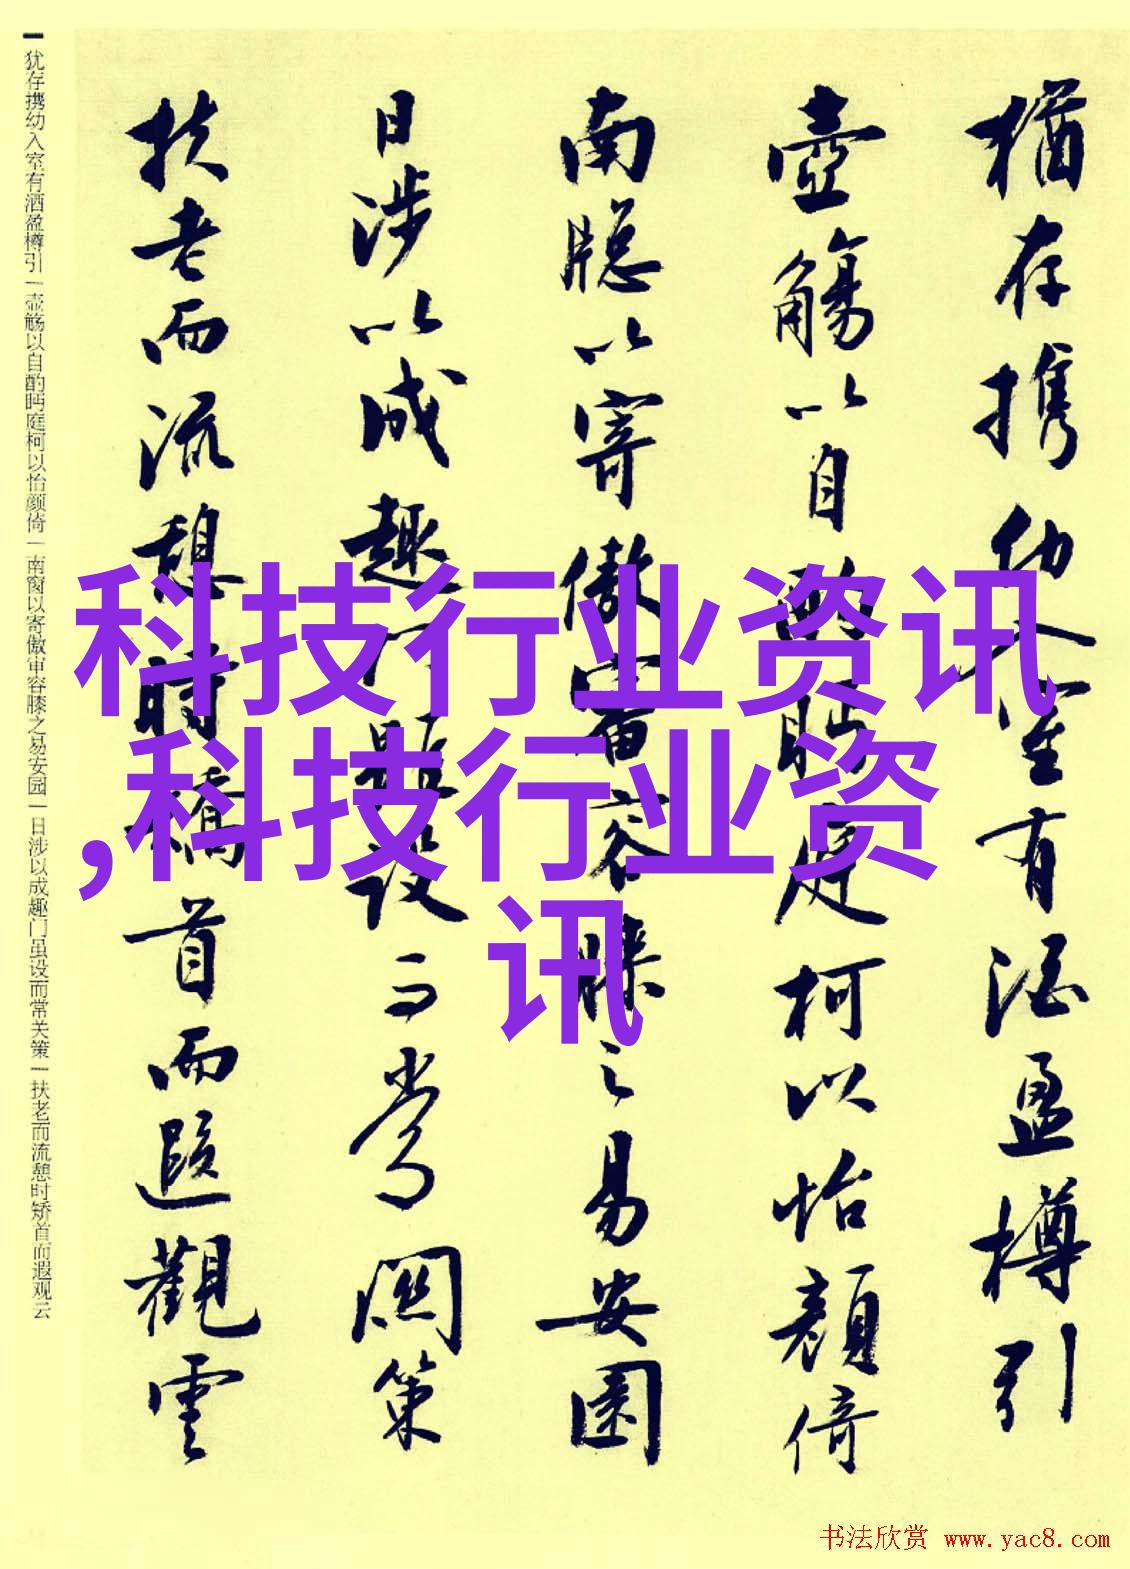 猶存攜幼入室有酒盈樽引
壺觴以自酌眄庭柯以怡顏倚
南牕以寄傲審容膝之易安園
日涉以成趣門雖設而常關策
扶老而流憩時矯首而遐觀雲
犹存携幼入室有酒盈樽引一壶觞以自酌眄庭柯以怡颜倚一南窗以寄傲审容膝之易安园一日涉以成趣门虽设而常关策一扶老而流憩时矫首而遐观云
科技行业资讯
,科技行业资
讯
书法欣赏 www.yac8.com